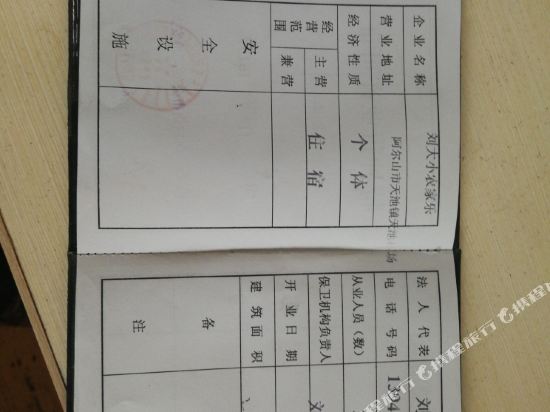 企业名称 刘大小农家乐
营业地址 阿尔山市天池镇天池林场
经济性质 个体
经营范围 主营 住宿
兼营
安全设施
法人代表 刘
电话号码 1394
从业人员(数)
保卫机构负责人 刘
开业日期
建筑面积
备注
携程旅行
携程旅行